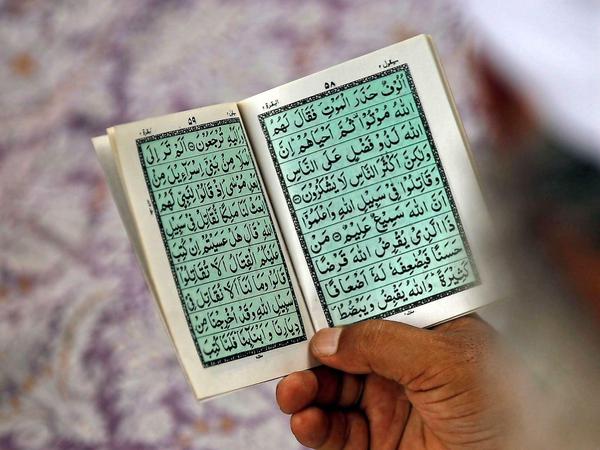 سيقول ٢ ٥٨ البقرة ٢
اُلُوْفٌ حَذَرَ الْمَوْتِ فَقَالَ لَهُمُ
اللّٰهُ مُوْتُوْا ثُمَّ اَحْيَاهُمْ اِنَّ
اللّٰهَ لَذُوْ فَضْلٍ عَلَى النَّاسِ
وَلٰكِنَّ اَكْثَرَ النَّاسِ لَا يَشْكُرُوْنَ
وَقَاتِلُوْا فِيْ سَبِيْلِ اللّٰهِ وَاعْلَمُوْا
اَنَّ اللّٰهَ سَمِيْعٌ عَلِيْمٌ مَنْ
ذَا الَّذِيْ يُقْرِضُ اللّٰهَ قَرْضًا
حَسَنًا فَيُضٰعِفَهٗ لَهٗ اَضْعَافًا
كَثِيْرَةً وَاللّٰهُ يَقْبِضُ وَيَبْصُطُ
٥٩ البقرة ٢
اِلَيْهِ تُرْجَعُوْنَ اَلَمْ تَرَ اِلَى
الْمَلَاِ مِنْ بَنِيْ اِسْرَآءِيْلَ مِنْ
بَعْدِ مُوْسٰى اِذْ قَالُوْا لِنَبِيٍّ لَهُمُ
ابْعَثْ لَنَا مَلِكًا نُّقَاتِلْ فِيْ سَبِيْلِ
اللّٰهِ قَالَ هَلْ عَسَيْتُمْ اِنْ كُتِبَ
عَلَيْكُمُ الْقِتَالُ اَلَّا تُقَاتِلُوْا
قَالُوْا وَمَا لَنَا اَلَّا نُقَاتِلَ فِيْ
سَبِيْلِ اللّٰهِ وَقَدْ اُخْرِجْنَا مِنْ
دِيَارِنَا وَاَبْنَآئِنَا فَلَمَّا كُتِبَ